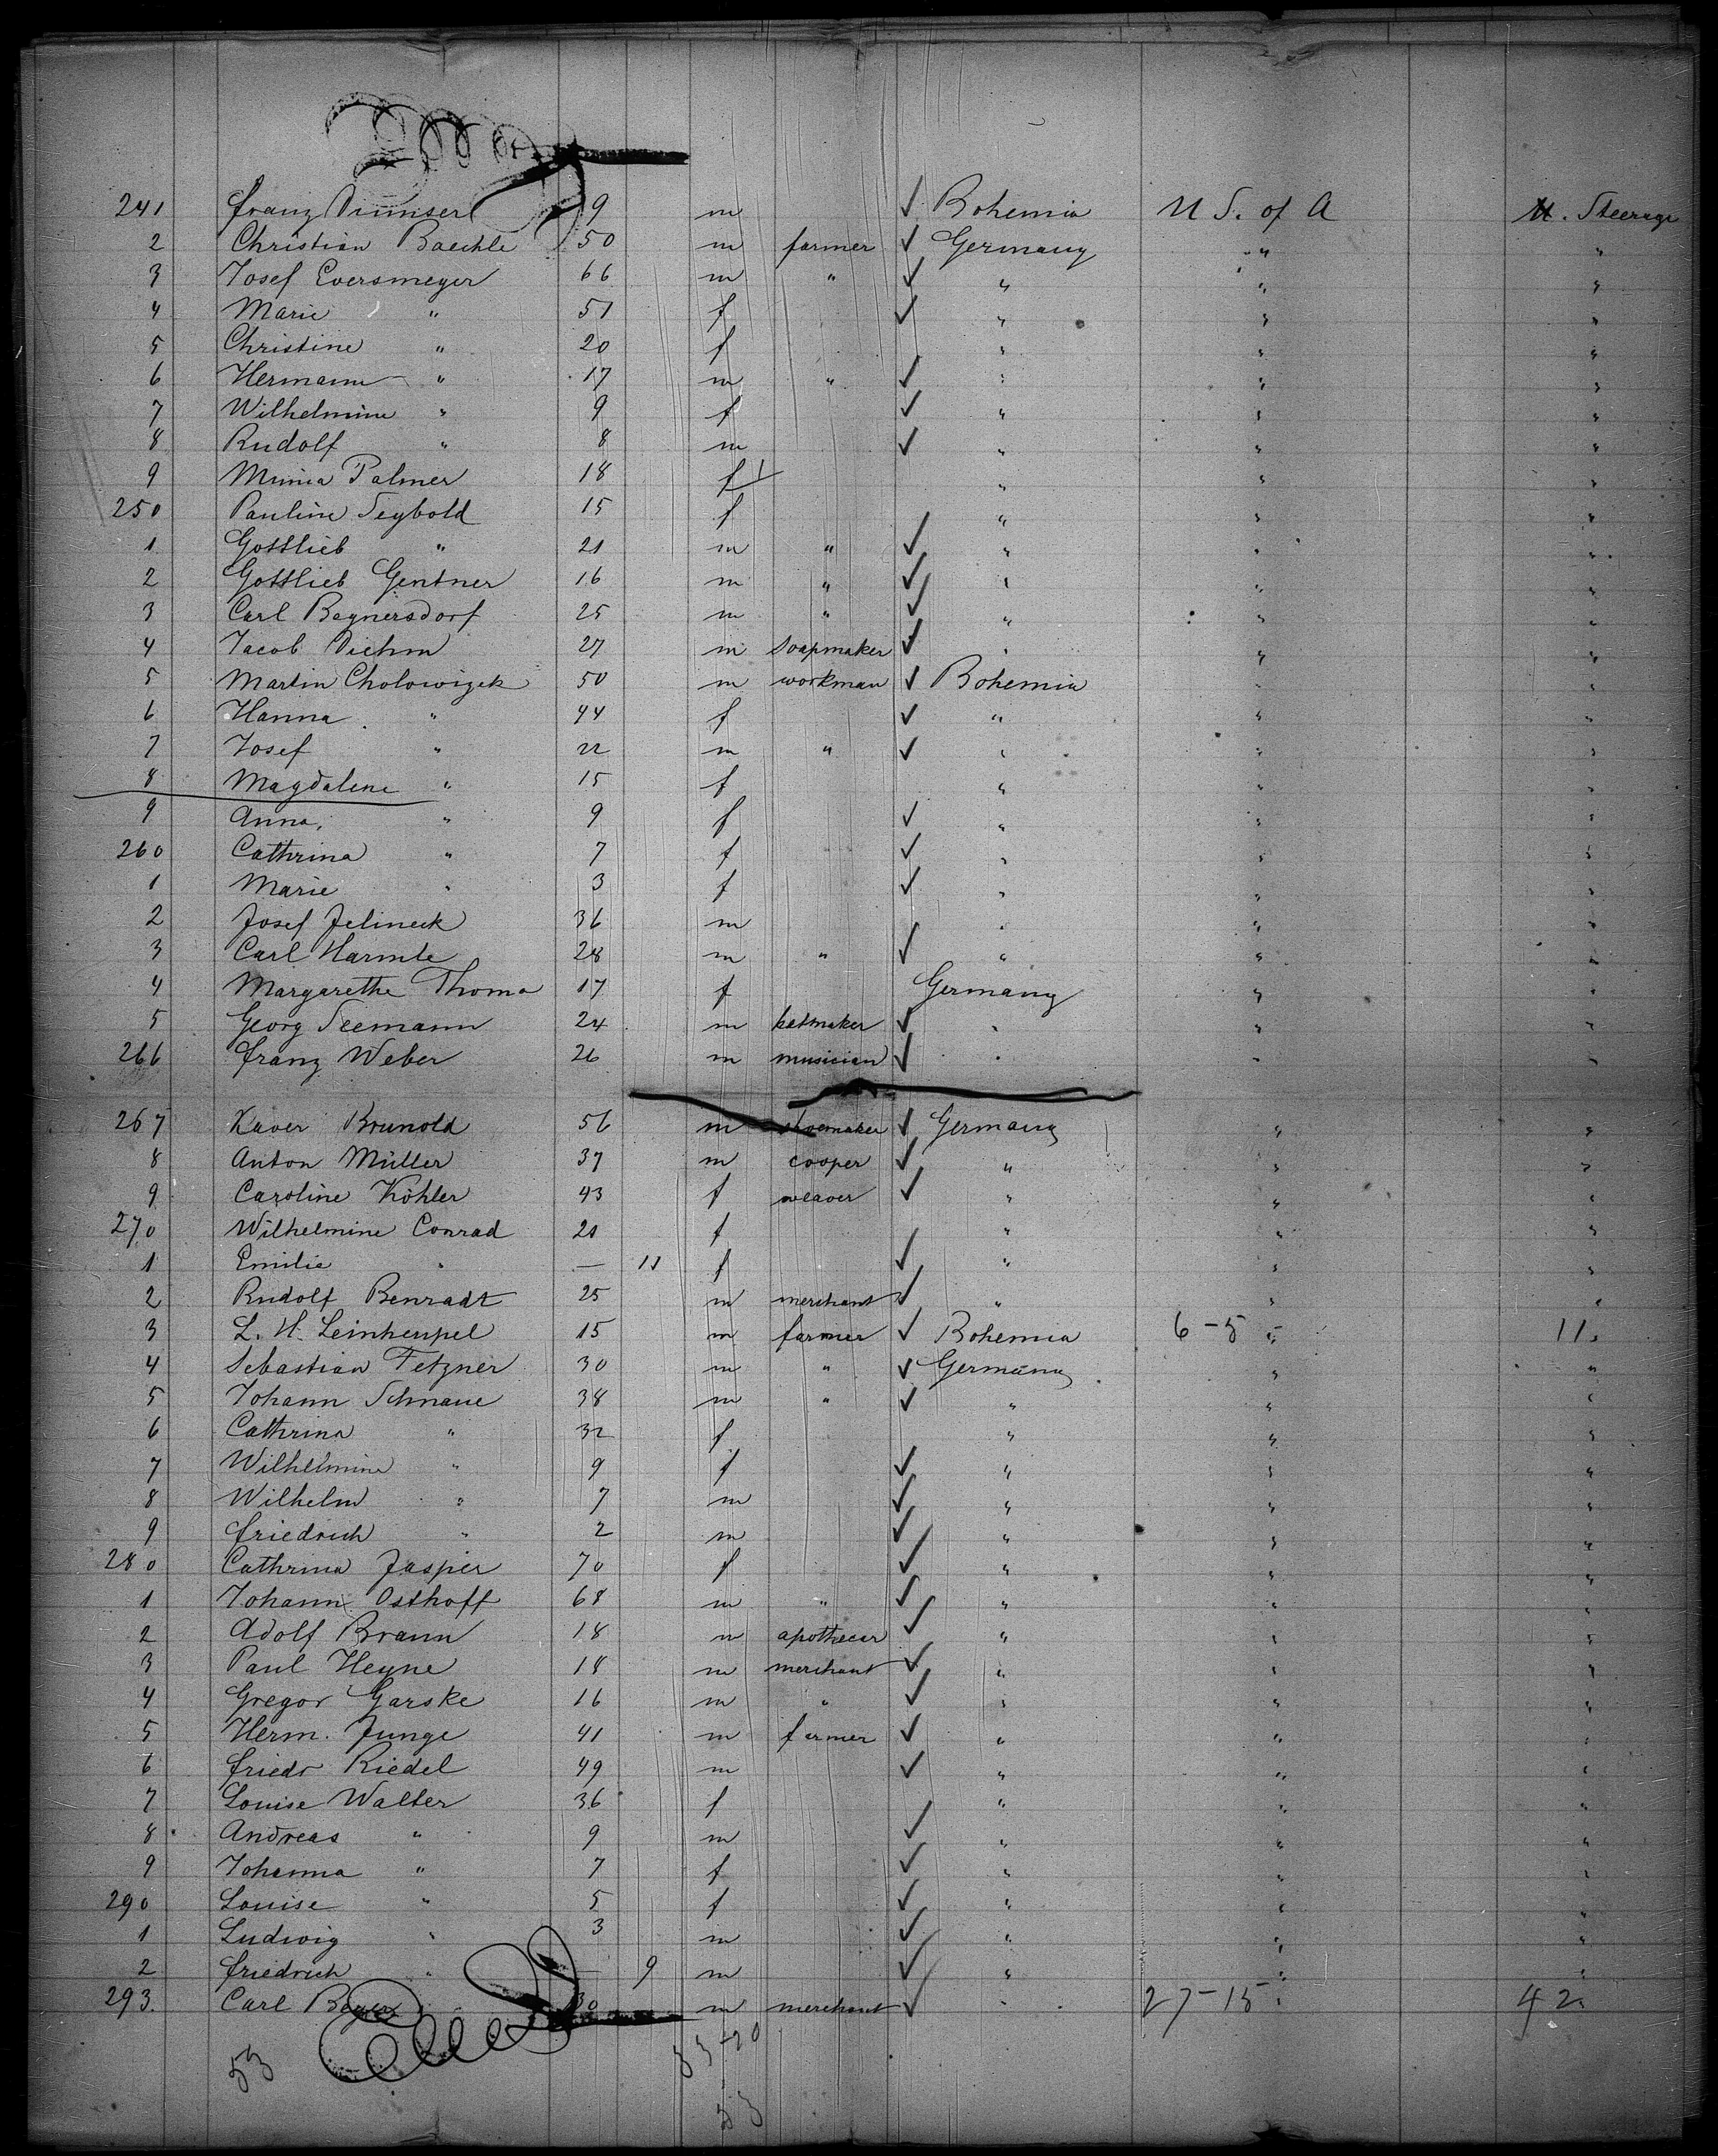 241 Franz Dumserl 9 m ✓ Bohemia U S. of A U. Steerage
2 Christian Baechle 50 m farmer ✓ Germany " "
3 Josef Eversmeyer 66 m " ✓ " " "
4 Marie " 51 f ✓ " " "
5 Christine " 20 f " " "
6 Hermann " 17 m " ✓ " " "
7 Wilhelmine " 9 f ✓ " " "
8 Rudolf " 8 m ✓ " " "
9 Minna Palmer 18 f " " "
250 Pauline Seybold 15 f " " "
1 Gottlieb " 21 m " ✓ " " "
2 Gottlieb Gentner 16 m " ✓ " " "
3 Carl Beynersdorf 25 m " ✓ " " "
4 Jacob Diehm 27 m soapmaker ✓ " " "
5 Martin Cholowizek 50 m workman ✓ Bohemia " "
6 Hanna " 44 f ✓ " " "
7 Josef " 22 m " ✓ " " "
8 Magdalene " 15 f " " "
9 Anna " 9 f ✓ " " "
260 Cathrina " 7 f ✓ " " "
1 Marie " 3 f ✓ " " "
2 Josef Jelineck 36 m " " "
3 Carl Harmle 28 m " ✓ " " "
4 Margarethe Thoma 17 f Germany " "
5 Georg Seemann 24 m hatmaker ✓ " " "
266 Franz Weber 26 m musician ✓ " " "
267 Xaver Brunold 56 m shoemaker ✓ Germany " "
8 Anton Müller 37 m cooper ✓ " " "
9 Caroline Köhler 43 f weaver ✓ " " "
270 Wilhelmine Conrad 21 f " " "
1 Emilie " — 11 f ✓ " " "
2 Rudolf Benradt 25 m merchant ✓ " " "
3 L. H. Leinhempel 15 m farmer ✓ Bohemia 6-5 " 11 "
4 Sebastian Fetzner 30 m " ✓ Germany " "
5 Johann Schnaue 38 m " ✓ " " "
6 Cathrina " 32 f " " "
7 Wilhelmine " 9 f ✓ " " "
8 Wilhelm " 7 m ✓ " " "
9 Friedrich " 2 m ✓ " " "
280 Cathrina Jasper 70 f ✓ " " "
1 Johann Osthoff 68 m " ✓ " " "
2 Adolf Braun 18 m apothecar ✓ " " "
3 Paul Heyne 18 m merchant ✓ " " "
4 Gregor Garske 16 m " ✓ " " "
5 Herm. Junge 41 m farmer ✓ " " "
6 Friedr Riedel 49 m ✓ " " "
7 Louise Walter 36 f " " "
8 Andreas " 9 m ✓ " " "
9 Johanna " 7 f ✓ " " "
290 Louise " 5 f ✓ " " "
1 Ludwig " 3 m ✓ " " "
2 Friedrich " — 9 m ✓ " " "
293. Carl 30 m merchant ✓ " 27-15 " 42
53 33-20
53